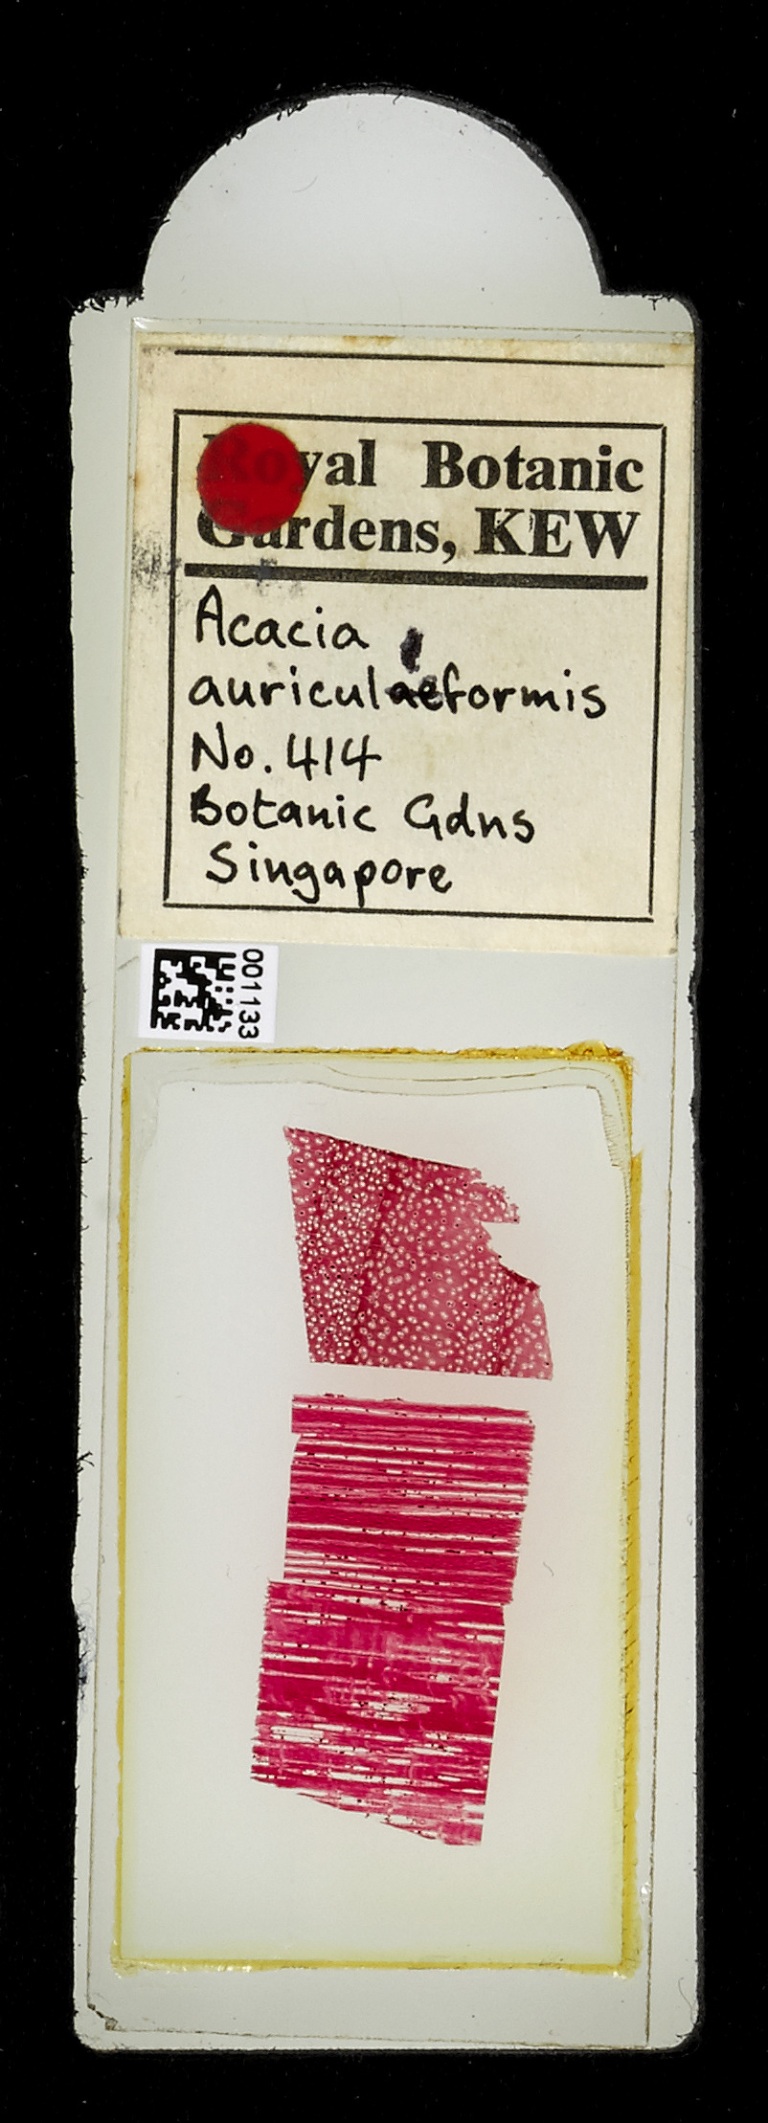 Royal Botanic
Gardens, KEW
Acacia
auriculaeformis
No. 414
Botanic Gdns
Singapore
001133